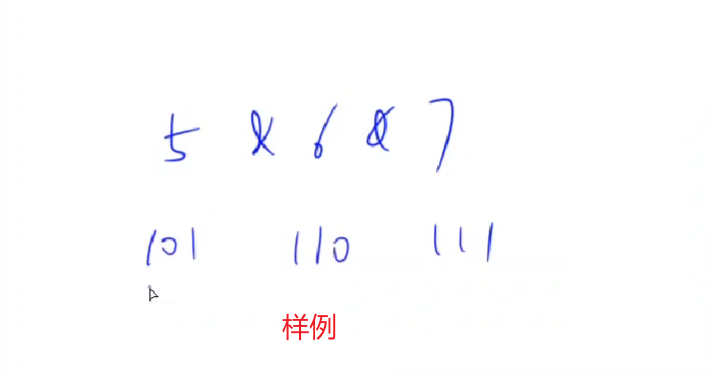 5 & 6 & 7
101 110 111
样例